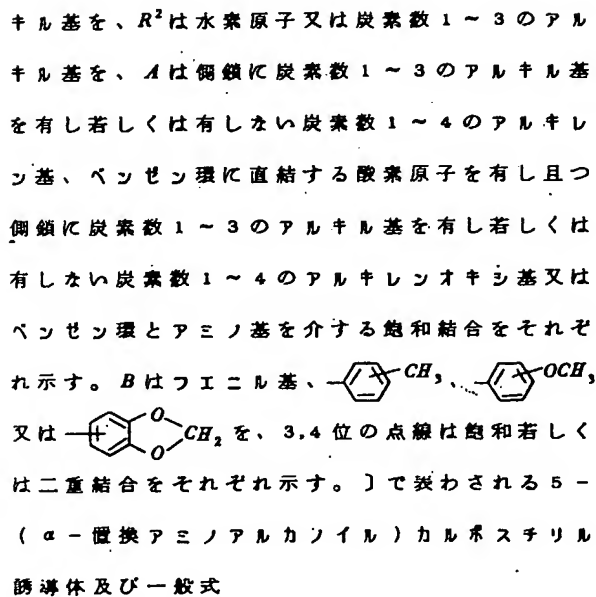 キル基を、R²は水素原子又は炭素数1~3のアル
キル基を、Aは側鎖に炭素数1~3のアルキル基
を有し若しくは有しない炭素数1~4のアルキレ
ン基、ベンゼン環に直結する酸素原子を有し且つ
側鎖に炭素数1~3のアルキル基を有し若しくは
有しない炭素数1~4のアルキレンオキシ基又は
ベンゼン環とアミノ基を介する飽和結合をそれぞ
れ示す。Bはフエニル基、CH₃、OCH₃
又は O O CH₂ を、3,4位の点線は飽和若しく
は二重結合をそれぞれ示す。〕で表わされる5-
(α-置換アミノアルカノイル)カルボスチリル
誘導体及び一般式